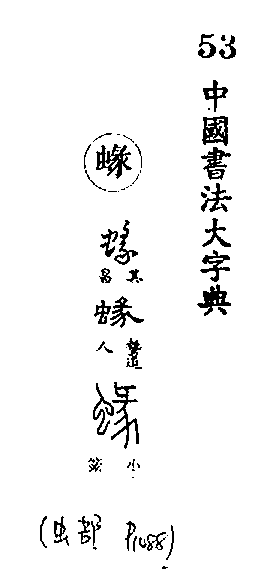 53
中國書法大字典
蝝
蝝
其昌
蝝
蝝
小篆
(虫部 P1488)